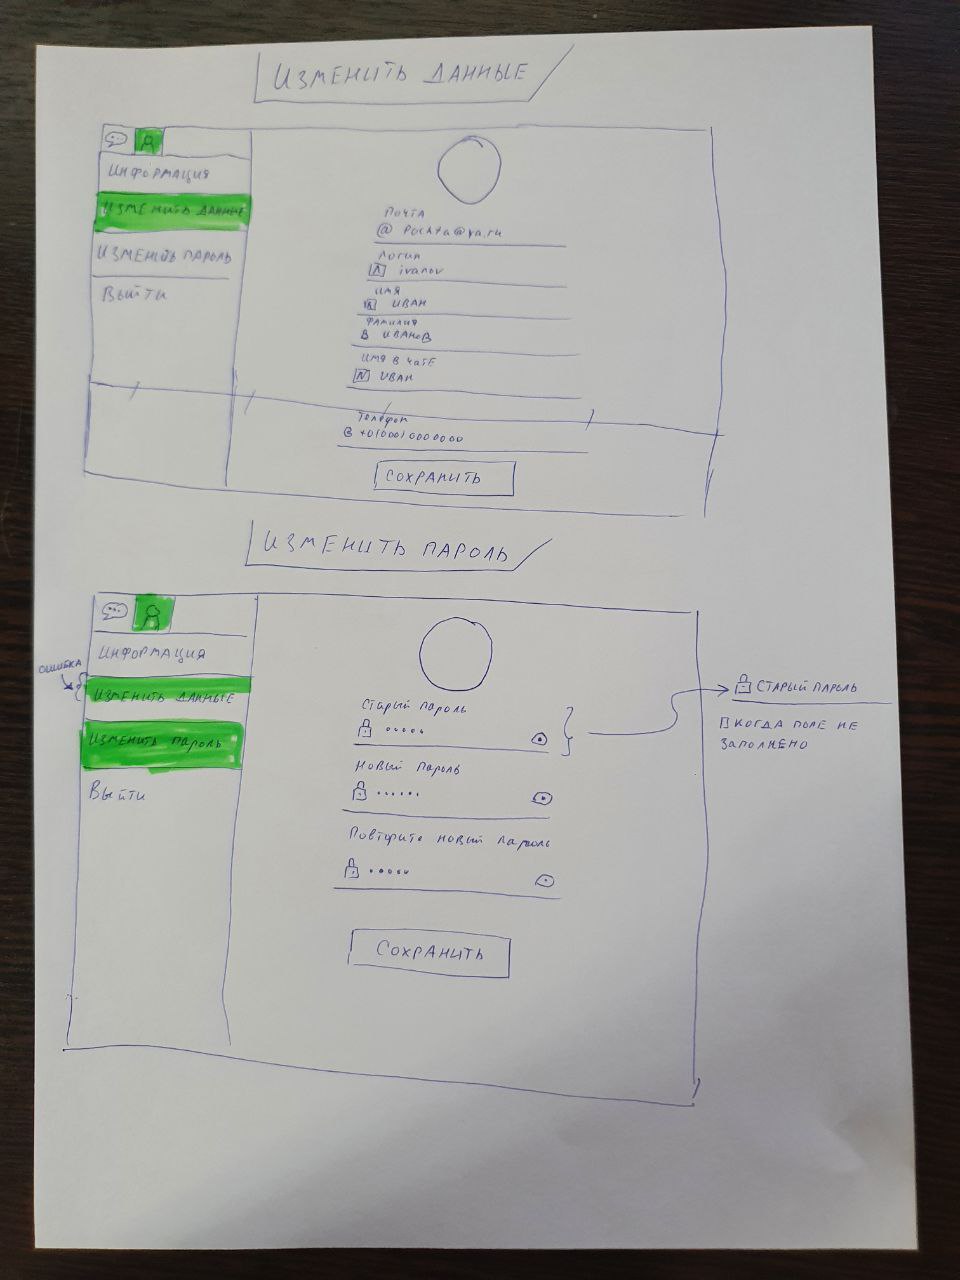 ИЗМЕНИТЬ ДАННЫЕ
ИНФОРМАЦИЯ
ИЗМЕНИТЬ ДАННЫЕ
ИЗМЕНИТЬ ПАРОЛЬ
ВЫЙТИ
ПОЧТА
@ Pochta@ya.ru
ЛОГИН
ivanov
ИМЯ
ИВАН
ФАМИЛИЯ
ИВАНОВ
ИМЯ В ЧАТЕ
ИВАН
ТЕЛЕФОН
+0(000)0000000
СОХРАНИТЬ
ИЗМЕНИТЬ ПАРОЛЬ
ИНФОРМАЦИЯ
ОШИБКА
ИЗМЕНИТЬ ДАННЫЕ
ИЗМЕНИТЬ ПАРОЛЬ
ВЫЙТИ
СТАРЫЙ ПАРОЛЬ
НОВЫЙ ПАРОЛЬ
ПОВТОРИТЕ НОВЫЙ ПАРОЛЬ
СОХРАНИТЬ
СТАРЫЙ ПАРОЛЬ
КОГДА ПОЛЕ НЕ
ЗАПОЛНЕНО